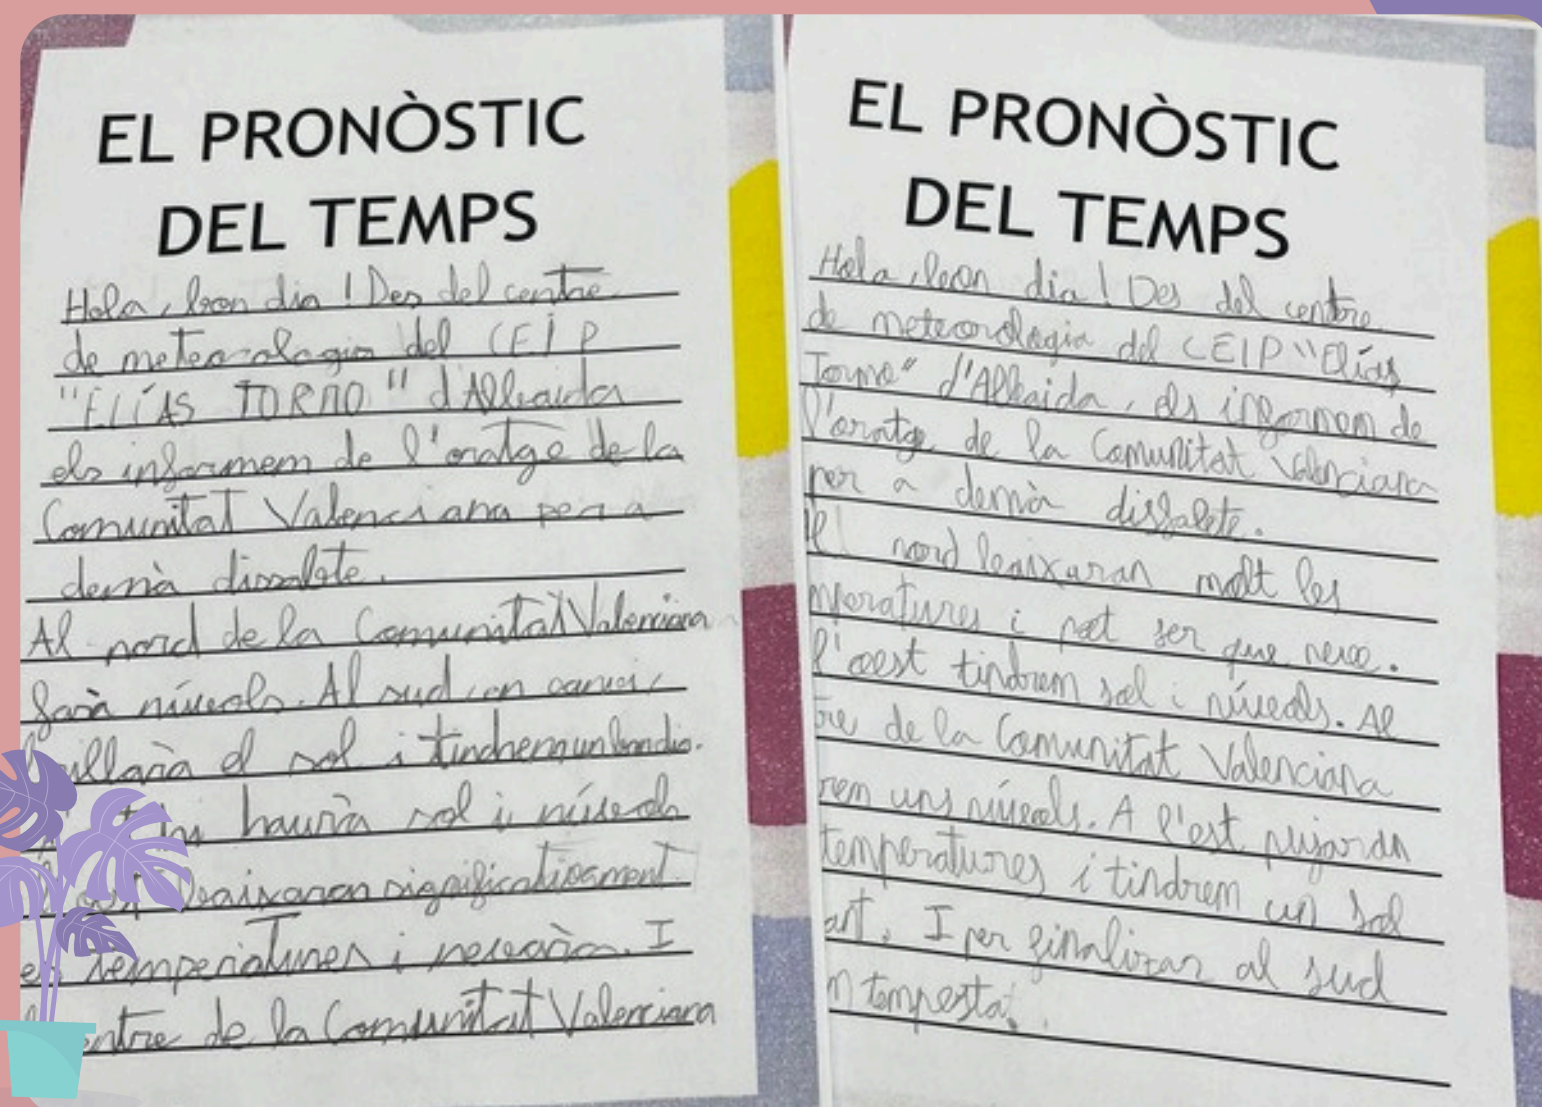 EL PRONÒSTIC
DEL TEMPS
Hola, bon dia! Des del centre
de meteorologia del CEIP
"ELÍAS TORMO" d'Albaida
els informem de l'oratge de la
Comunitat Valenciana per a
demà dissabte.
Al nord de la Comunitat Valenciana
farà núvols. Al sud, en canvi,
el sol i tindrem un bon dia.
hi haurà sol i núvols
baixaran significativament
temperatures i nevarà. I
de la Comunitat Valenciana
EL PRONÒSTIC
DEL TEMPS
Hola, bon dia! Des del centre
de meteorologia del CEIP "Elías
Tormo" d'Albaida, els informem de
l'oratge de la Comunitat Valenciana
per a demà dissabte.
nord baixaran molt les
i pot ser que neve.
l'oest tindrem sol i núvols. Al
de la Comunitat Valenciana
uns núvols. A l'est pujaran
temperatures i tindrem un sol
I per finalitzar al sud
tempesta.